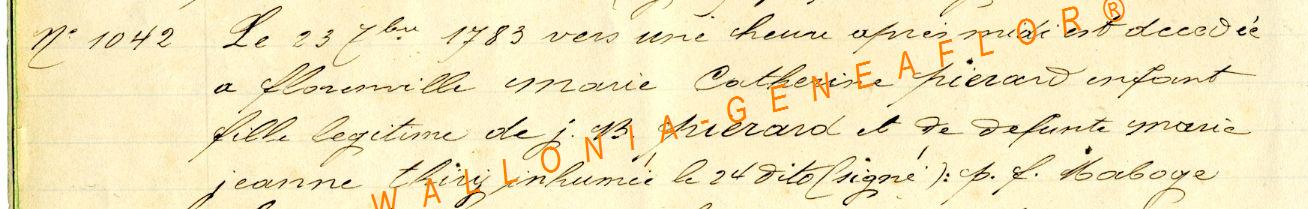 N° 1042 Le 23 7bre 1783 vers une heure après midi est decedée
a florenville marie Catherine pierard enfant
fille legitime de j. B. pierard et de defunte marie
jeanne thiry inhumée le 24 dito (signé): p. f. Maboge
WALLONIA-GENEAFLOR®